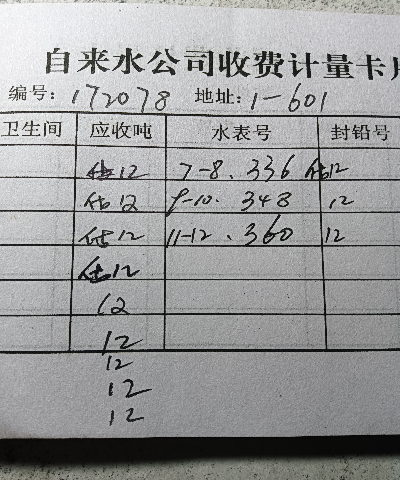 自来水公司收费计量卡片
编号: 172078 地址: 1-601
卫生间 应收吨 水表号 封铅号
估12 7-8. 336 估12
估12 9-10. 348 12
估12 11-12. 360 12
估12
12
12
12
12
12